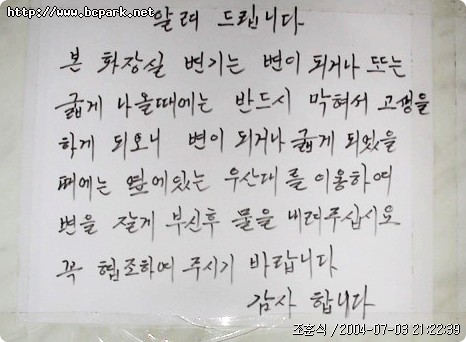 http://www.bcpark.net
알려 드립니다
본 화장실 변기는 변이 되거나 또는
굵게 나올때에는 반드시 막혀서 고생을
하게 되오니 변이 되거나 굵게 되었을
때에는 옆에있는 우산대를 이용하여
변을 잘게 부신후 물을 내려주십시요
꼭 협조하여 주시기 바랍니다
감사 합니다
조훈식 / 2004-07-03 21:22:39